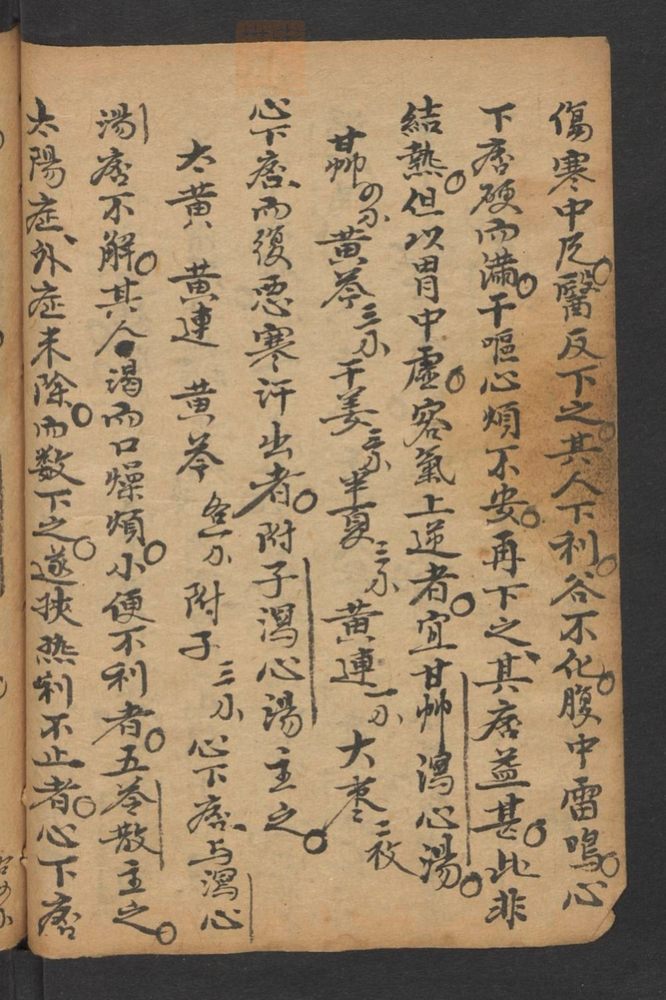 傷寒中风。醫反下之。其人下利。谷不化。腹中雷鳴。心
下痞硬而满。干嘔心煩不安。再下之、其痞益甚。此非
結熱。但以胃中虛。客氣上逆者。宜甘艸瀉心湯。
甘艸四分黄芩三分干姜三分半夏三分黄連一分大枣二枚
心下痞、而復恶寒汗出者。附子瀉心湯主之。
大黄 黄連 黄芩 各一分 附子 三分 心下痞、与瀉心
湯痞不解。其人渴而口燥煩。小便不利者。五苓散主之。
太陽症、外症未除。而数下之。遂挾热利不止者。心下痞